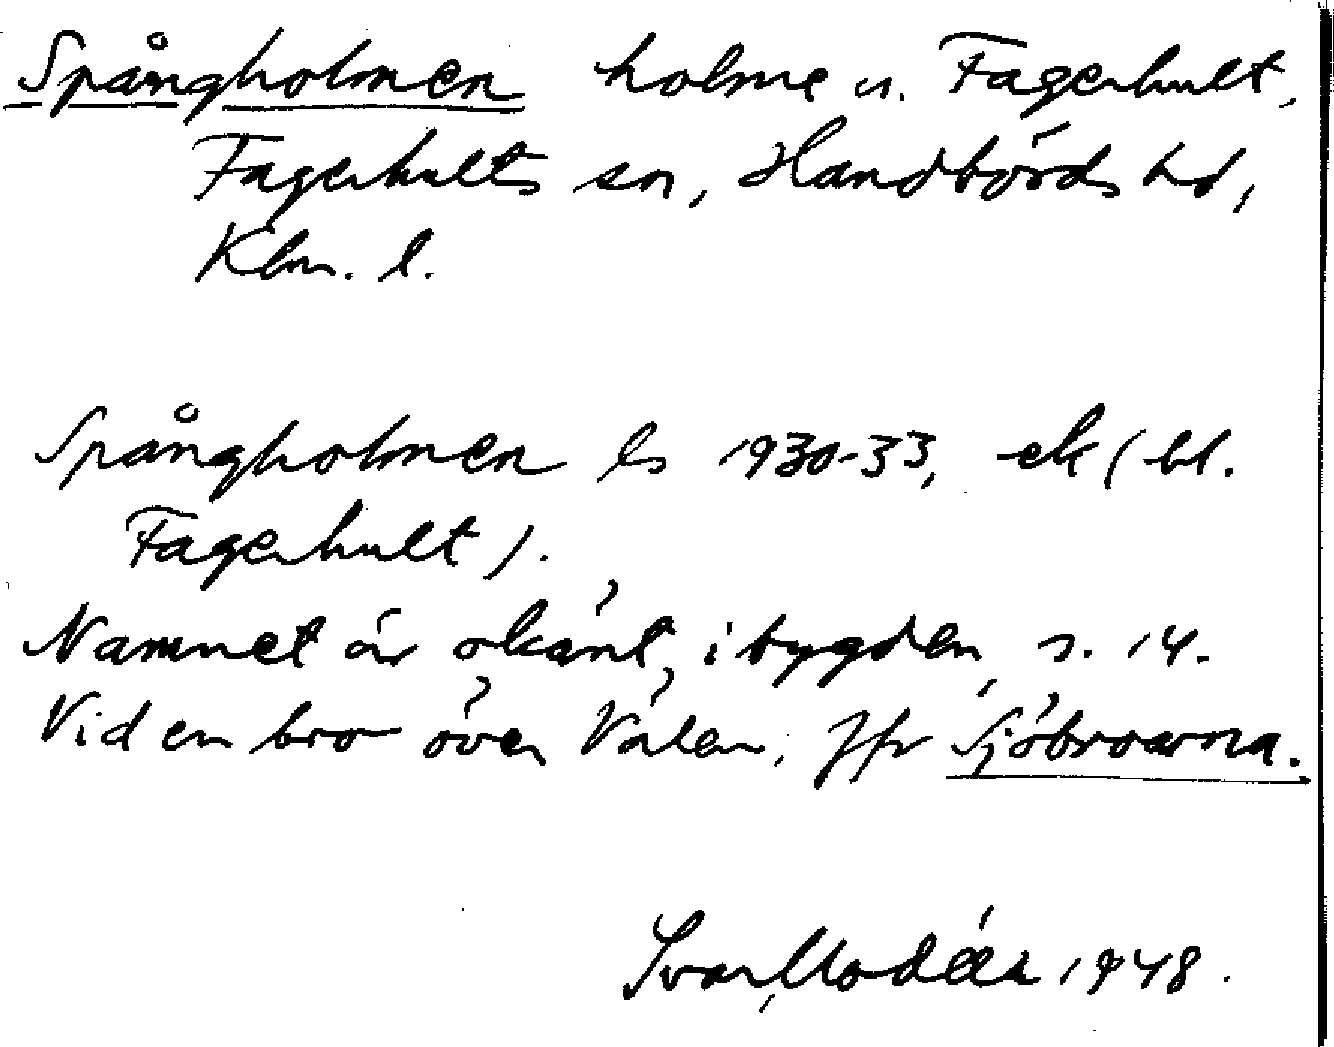 Spångholmen holme u. Fagerhult,
Fagerhults sn, Handbörds hd,
Klm. l.
Spångholmen Ls 1930-33, ek (bl.
Fagerhult).
Namnet är okänt i bygden, s. 14.
Vid en bro över Välen. Jfr Sjöbroarna.
Ivar Modéer 1948.